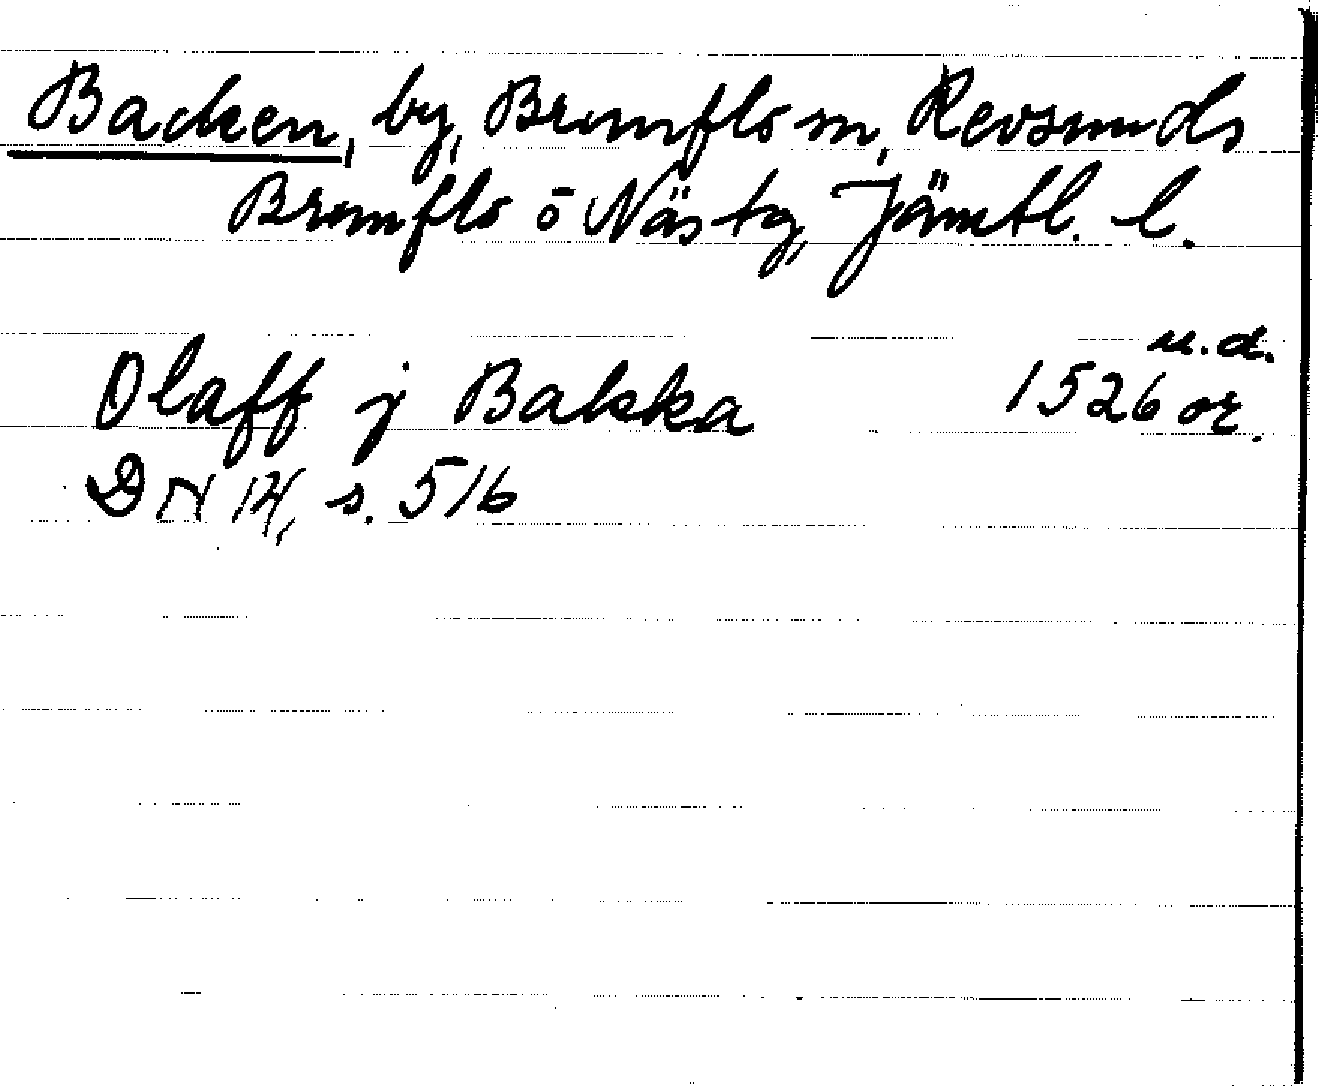 Backen, by, Brunflo sn, Revsunds
Brunflo o Näs tg, Jämtl. l.
u.d.
Olaff j Bakka 1526 or.
DN 14, s. 516